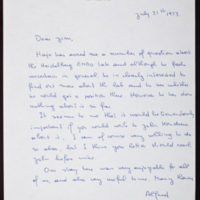 July 21st 1973
Dear Jim,
Hugo has asked me a number of questions about
the Heidelberg EMBO Lab and although to
in general he is clearly interested to
find out more about the lab and to see whether
he would get a position there However he has done
nothing about it so far.
It seems to me that it would be
important if you would write to John Kendrew
about it. I am of course very willing to do
so also, but I think you letter should reach
John before mine.
Our stay here was very enjoyable for all
of us and also very useful to me. Many thanks
Alfred